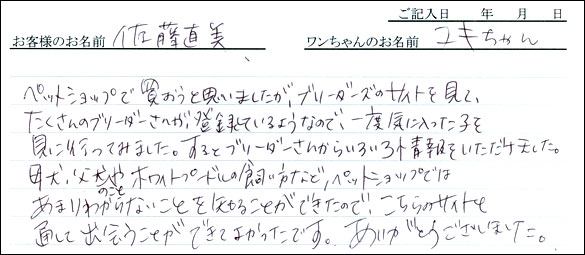 ご記入日 年 月 日
お客様のお名前 佐藤直美 ワンちゃんのお名前 ユキちゃん
ペットショップで買おうと思いましたが、ブリーダーズのサイトを見て、
たくさんのブリーダーさんが、登録しているようなので、一度気に入った子を
見に行ってみました。するとブリーダーさんからいろいろ情報をいただけました。
母犬、父犬のことや ホワイトプードルの飼い方など、ペットショップでは
あまりわからないことを知ることができたので、こちらのサイトを
通して出会うことができてよかったです。ありがとうございました。